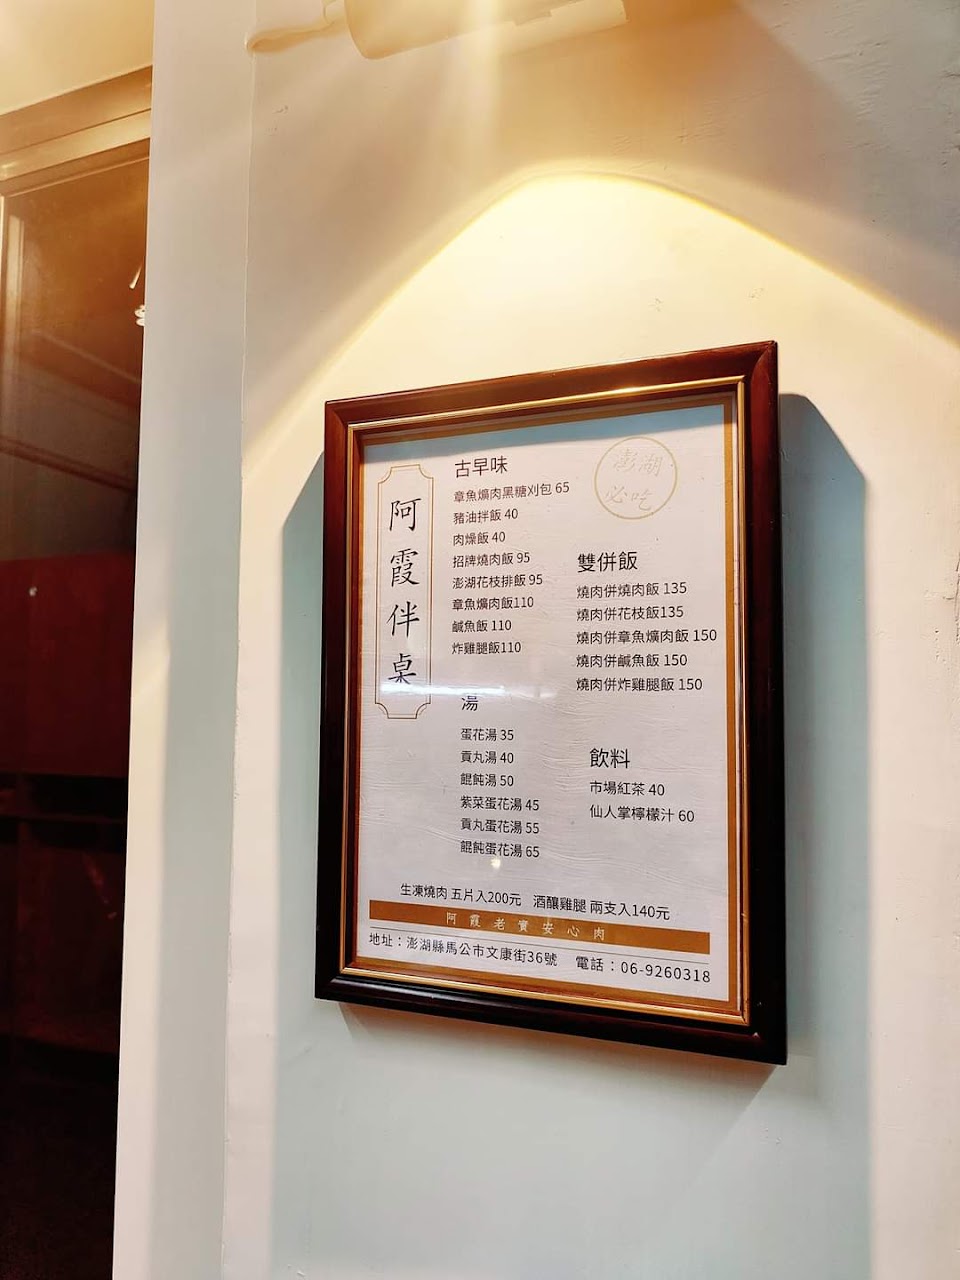 阿霞伴桌
古早味
章魚爌肉黑糖刈包 65
豬油拌飯 40
肉燥飯 40
招牌燒肉飯 95
澎湖花枝排飯 95
章魚爌肉飯110
鹹魚飯 110
炸雞腿飯110
湯
蛋花湯 35
貢丸湯 40
餛飩湯 50
紫菜蛋花湯 45
貢丸蛋花湯 55
餛飩蛋花湯 65
澎湖
必吃
雙併飯
燒肉併燒肉飯 135
燒肉併花枝飯135
燒肉併章魚爌肉飯 150
燒肉併鹹魚飯 150
燒肉併炸雞腿飯 150
飲料
市場紅茶 40
仙人掌檸檬汁 60
生凍燒肉 五片入200元 酒釀雞腿 兩支入140元
阿霞老實安心肉
地址：澎湖縣馬公市文康街36號 電話：06-9260318